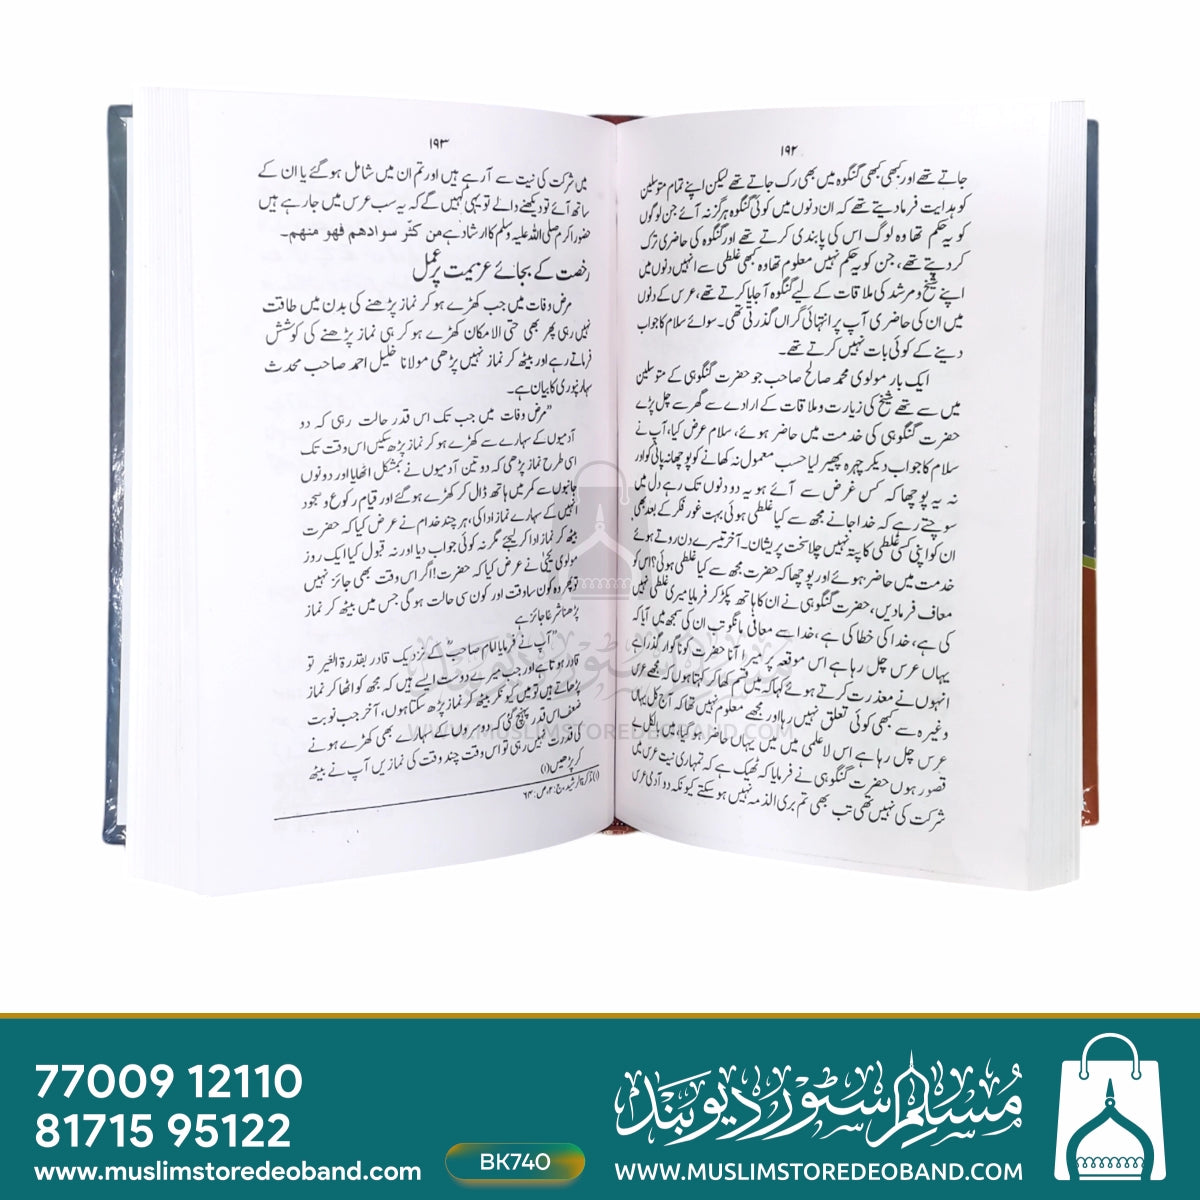 ۱۹۲
جاتے تھے اور کبھی کبھی گنگوہ میں بھی رک جاتے تھے لیکن اپنے تمام متوسلین
کو ہدایت فرمادیتے تھے کہ ان دنوں میں کوئی گنگوہ ہرگز نہ آئے جن لوگوں
کو یہ حکم تھا وہ لوگ اس کی پابندی کرتے تھے اور گنگوہ کی حاضری ترک
کردیتے تھے، جن کو یہ حکم نہیں معلوم تھا وہ کبھی غلطی سے انہیں دنوں میں
اپنے شیخ و مرشد کی ملاقات کے لیے گنگوہ آجایا کرتے تھے، عرس کے دنوں
میں ان کی حاضری آپ پر انتہائی گراں گذرتی تھی۔ سوائے سلام کا جواب
دینے کے کوئی بات نہیں کرتے تھے۔
ایک بار مولوی محمد صالح صاحب جو حضرت گنگوہی کے متوسلین
میں سے تھے شیخ کی زیارت و ملاقات کے ارادے سے گھر سے چل پڑے
حضرت گنگوہی کی خدمت میں حاضر ہوئے، سلام عرض کیا، آپ نے
سلام کا جواب دیکر چہرہ پھیر لیا حسب معمول نہ کھانے کو پوچھا نہ پانی کو اور
نہ یہ پوچھا کہ کس غرض سے آئے ہو یہ دو دنوں تک رہے دل میں
سوچتے رہے کہ خدا جانے مجھ سے کیا غلطی ہوئی بہت غور فکر کے بعد بھی
ان کو اپنی کسی غلطی کا پتہ نہیں چلا سخت پریشان۔ آخر تیسرے دن روتے ہوئے
خدمت میں حاضر ہوئے اور پوچھا کہ حضرت مجھ سے کیا غلطی ہوئی؟ اس کو
معاف فرمادیں، حضرت گنگوہی نے ان کا ہاتھ پکڑ کر فرمایا میری غلطی نہیں
کی ہے، خدا کی خطا کی ہے، خدا سے معافی مانگو تب ان کی سمجھ میں آیا کہ
یہاں عرس چل رہا ہے اس موقعہ پر میرا آنا حضرت کو ناگوار گذرا ہے
انہوں نے معذرت کرتے ہوئے کہا کہ میں قسم کھا کر کہتا ہوں کہ مجھے عرس
وغیرہ سے کبھی کوئی تعلق نہیں رہا اور مجھے معلوم نہیں تھا کہ آج کل یہاں
عرس چل رہا ہے اس لاعلمی میں میں یہاں حاضر ہو گیا، میں بالکل بے
قصور ہوں حضرت گنگوہی نے فرمایا کہ ٹھیک ہے کہ تمہاری نیت عرس میں
شرکت کی نہیں تھی تب بھی تم بری الذمہ نہیں ہو سکتے کیونکہ دو آدمی عرس
۱۹۳
میں شرکت کی نیت سے آرہے ہیں اور تم ان میں شامل ہو گئے یا ان کے
ساتھ آئے تو دیکھنے والے تو یہی کہیں گے کہ یہ سب عرس میں جارہے ہیں
حضور اکرم صلی اللہ علیہ وسلم کا ارشاد ہے من كثر سوادهم فهو منهم۔
رخصت کے بجائے عزیمت پر عمل
مرض وفات میں جب کھڑے ہو کر نماز پڑھنے کی بدن میں طاقت
نہیں رہی پھر بھی حتی الامکان کھڑے ہو کر ہی نماز پڑھنے کی کوشش
فرماتے رہے اور بیٹھ کر نماز نہیں پڑھی مولانا خلیل احمد صاحب محدث
سہارنپوری کا بیان ہے۔
"مرض وفات میں جب تک اس قدر حالت رہی کہ دو
آدمیوں کے سہارے سے کھڑے ہو کر نماز پڑھ سکیں اس وقت تک
اسی طرح نماز پڑھی کہ دو تین آدمیوں نے بمشکل اٹھایا اور دونوں
جانبوں سے کمر میں ہاتھ ڈال کر کھڑے ہو گئے اور قیام رکوع و سجود
انہیں کے سہارے نماز ادا کی، ہر چند خدام نے عرض کیا کہ حضرت
بیٹھ کر نماز ادا کر لیجئے مگر نہ کوئی جواب دیا اور نہ قبول کیا ایک روز
مولوی یحییٰ نے عرض کیا کہ حضرت! اگر اس وقت بھی جائز نہیں
تو پھر وہ کون سا وقت اور کون سی حالت ہوگی جس میں بیٹھ کر نماز
پڑھنا شرعا جائز ہے
"آپ نے فرمایا امام صاحب کے نزدیک قادر بقدرۃ الغیر تو
قادر ہوتا ہے اور جب میرے دوست ایسے ہیں کہ مجھ کو اٹھا کر نماز
پڑھاتے ہیں تو میں کیونکر بیٹھ کر نماز پڑھ سکتا ہوں، آخر جب نوبت
ضعف اس قدر پہنچ گئی کہ دوسروں کے سہارے بھی کھڑے ہونے
کی قدرت نہیں رہی تو اس وقت چند وقت کی نمازیں آپ نے بیٹھ
کر پڑھیں (۱)
(۱) تذکرۃ الرشید، ج:۲، ص:۶۴
مسلم سٹور دیوبند
WWW.MUSLIMSTOREDEOBAND.COM
77009 12110
81715 95122
www.muslimstoredeoband.com
BK740
مسلم سٹور دیوبند
WWW.MUSLIMSTOREDEOBAND.COM